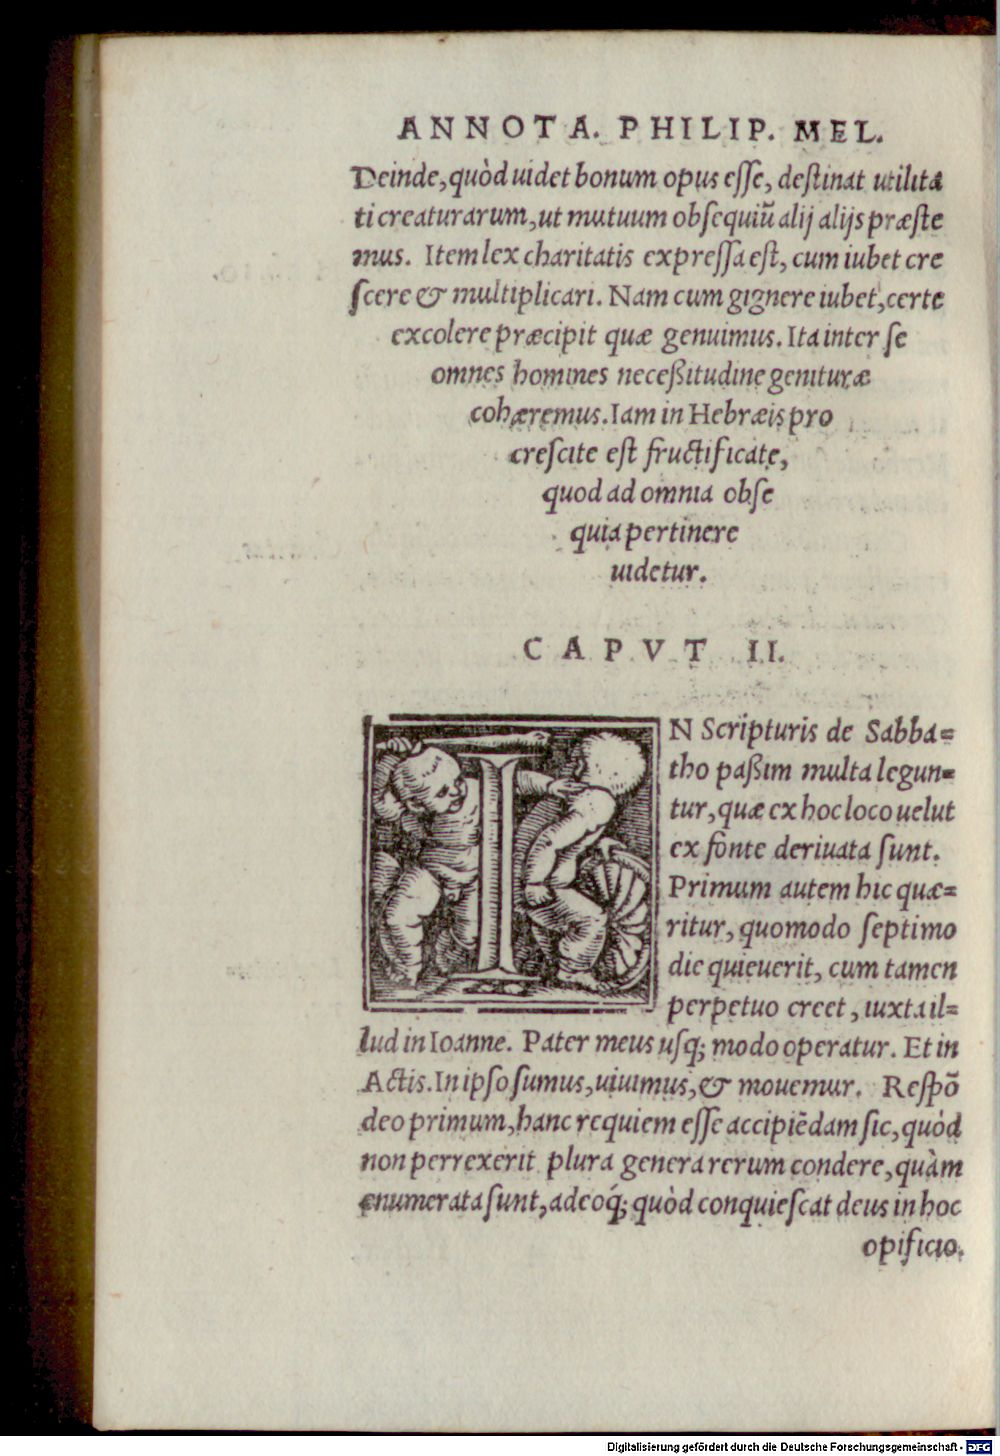 ANNOTA. PHILIP. MEL.
Deinde, quòd uidet bonum opus eſſe, deſtinat utilita
ti creaturarum, ut mutuum obſequiũ alij alijs præſte
mus. Item lex charitatis expreſſa eſt, cum iubet cre
ſcere & multiplicari. Nam cum gignere iubet, certe
excolere præcipit quæ genuimus. Ita inter ſe
omnes homines neceßitudine genituræ
cohæremus. Iam in Hebræis pro
creſcite eſt fructificate,
quod ad omnia obſe
quia pertinere
uidetur.
CAPVT II.
IN Scripturis de Sabba=
tho paßim multa legun=
tur, quæ ex hoc loco uelut
ex fonte deriuata ſunt.
Primum autem hic quæ=
ritur, quomodo ſeptimo
die quieuerit, cum tamen
perpetuo creet, iuxta il=
lud in Ioanne. Pater meus uſq; modo operatur. Et in
Actis. In ipſo ſumus, uiuimus, & mouemur. Reſpõ
deo primum, hanc requiem eſſe accipiẽdam ſic, quòd
non perrexerit plura genera rerum condere, quàm
enumerata ſunt, adeoq́; quòd conquieſcat deus in hoc
opificio.
Digitalisierung gefördert durch die Deutsche Forschungsgemeinschaft - DFG